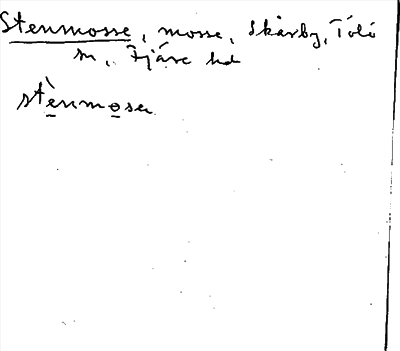 Stenmosse, mosse, Skårby, Tölö
sn, Fjäre hd
stènmosen